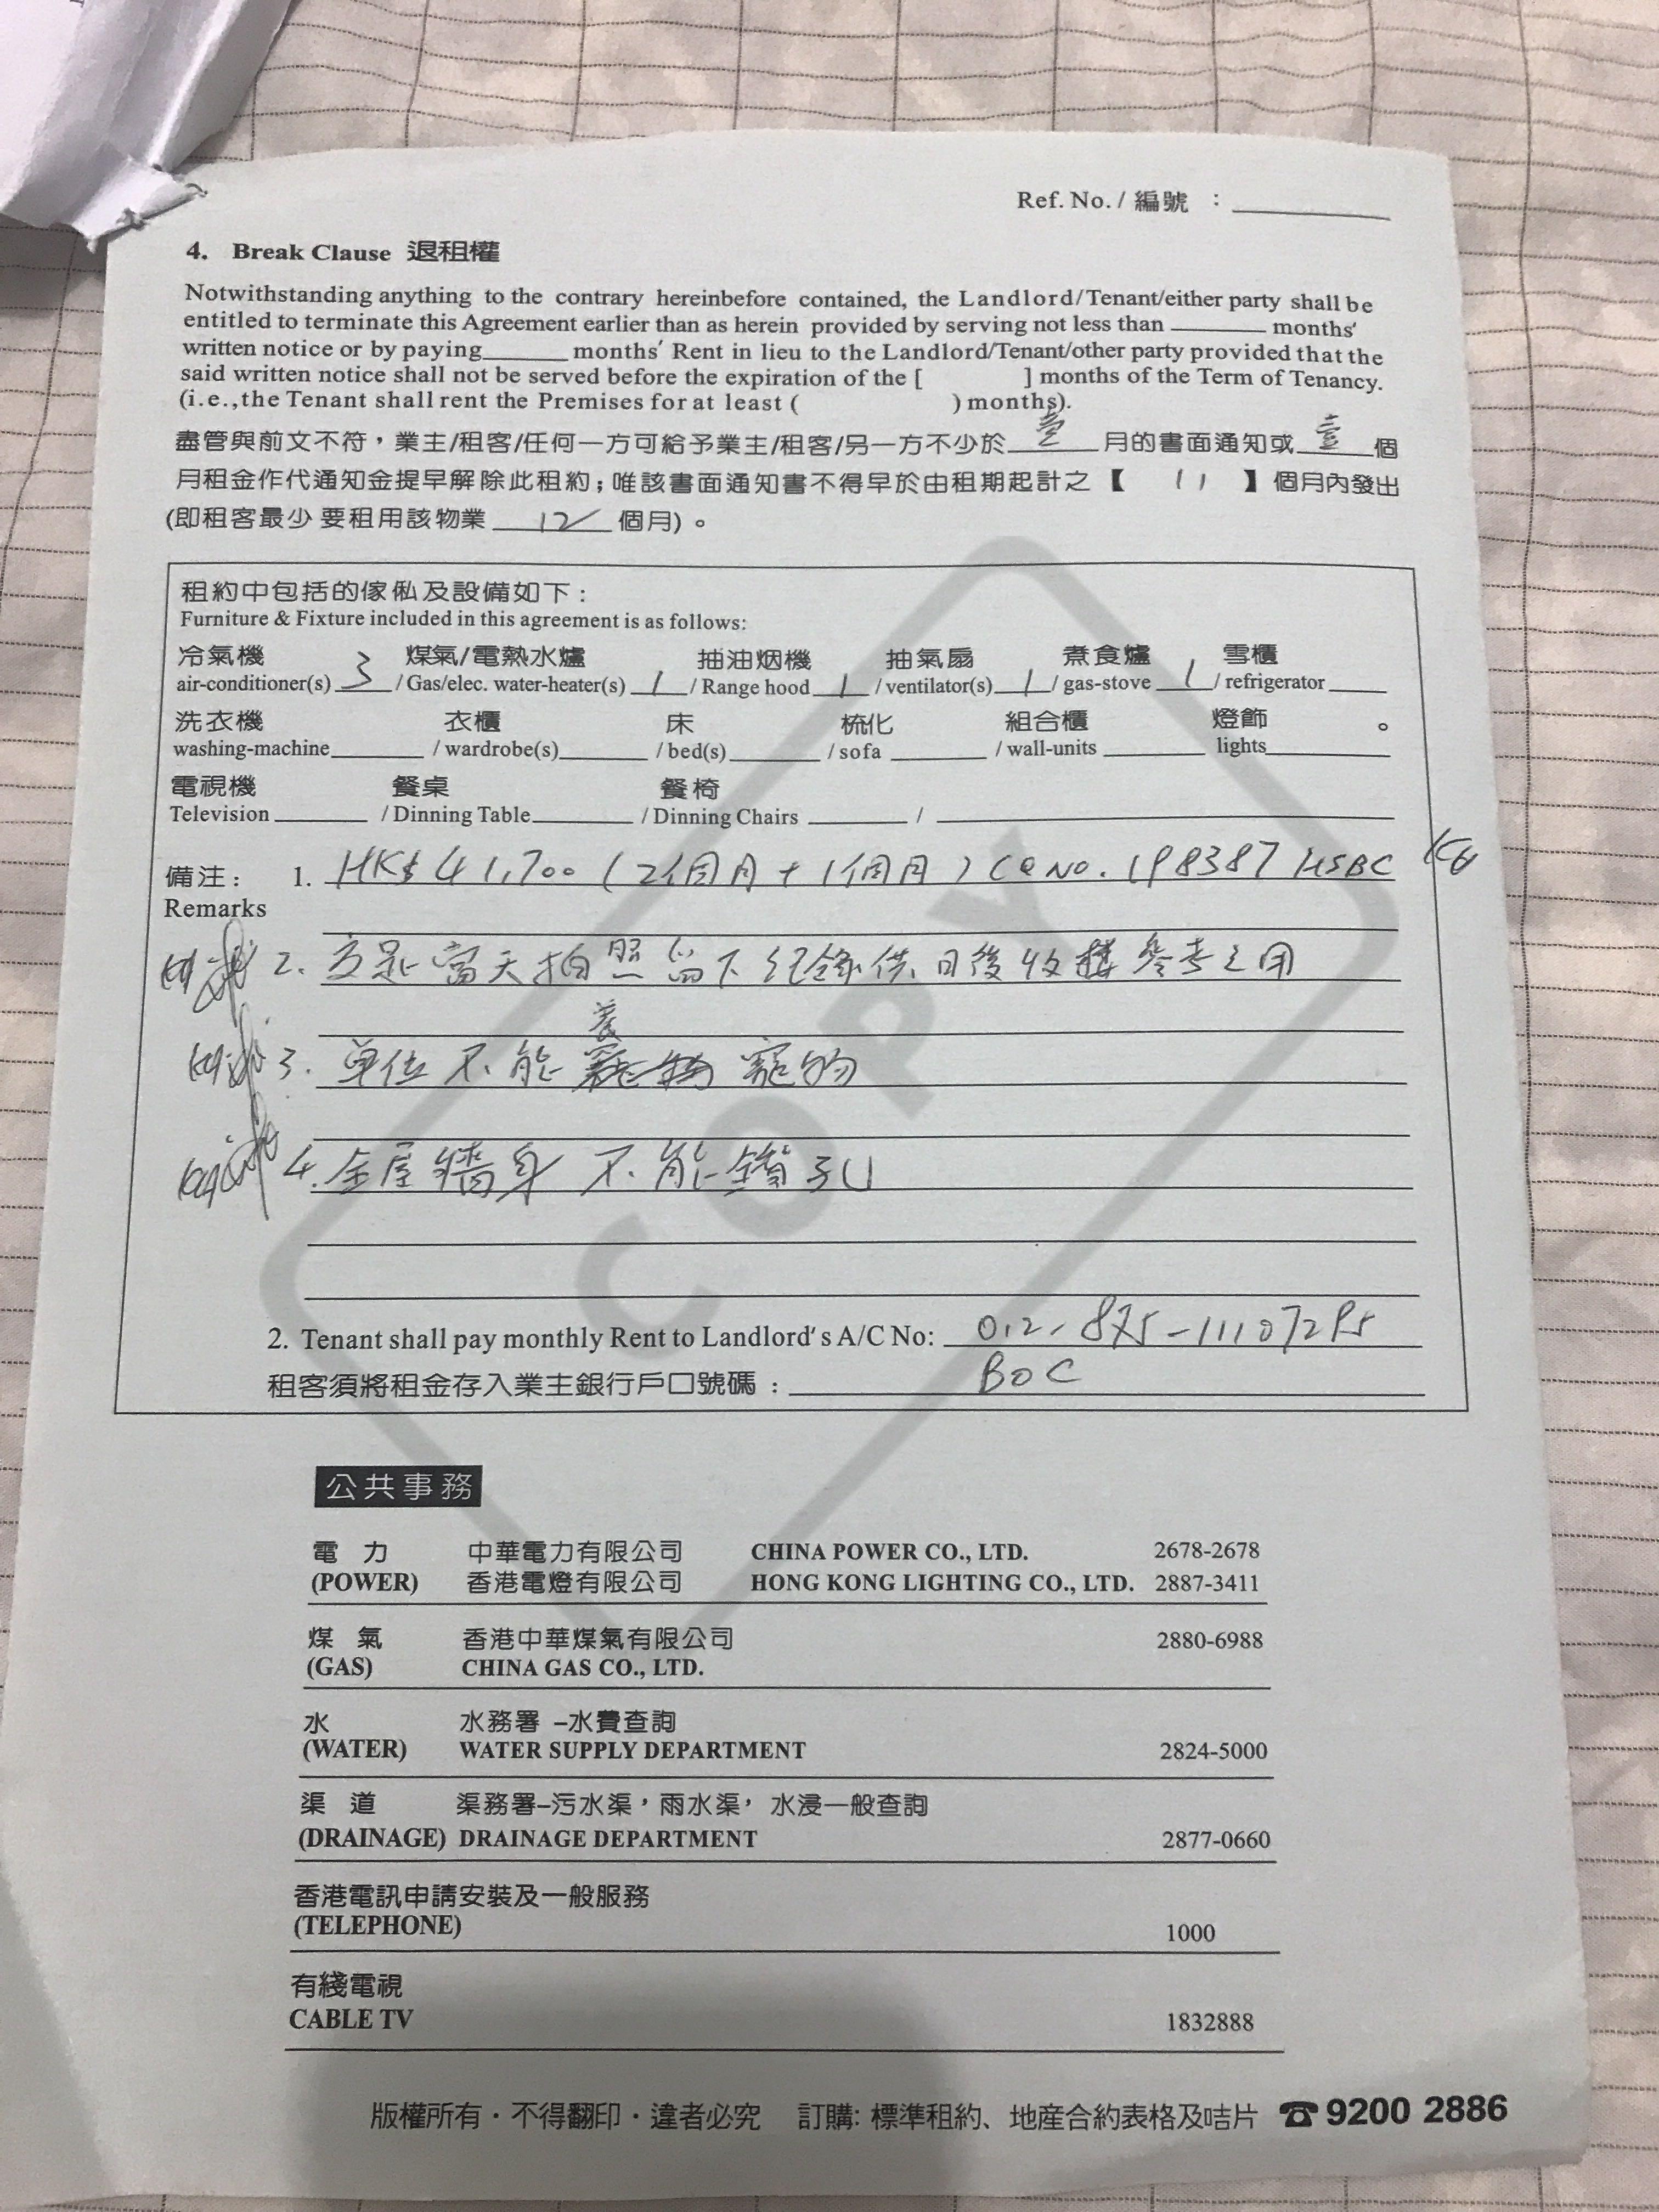 Ref. No. / 編號 : ________
4. Break Clause 退租權
Notwithstanding anything to the contrary hereinbefore contained, the Landlord/Tenant/either party shall be
entitled to terminate this Agreement earlier than as herein provided by serving not less than ________ months'
written notice or by paying ________ months' Rent in lieu to the Landlord/Tenant/other party provided that the
said written notice shall not be served before the expiration of the [ ] months of the Term of Tenancy.
(i.e.,the Tenant shall rent the Premises for at least ( ) months).
盡管與前文不符，業主/租客/任何一方可給予業主/租客/另一方不少於 壹 月的書面通知或 壹 個
月租金作代通知金提早解除此租約；唯該書面通知書不得早於由租期起計之【 11 】個月內發出
(即租客最少要租用該物業 12 個月)。
租約中包括的傢俬及設備如下：
Furniture & Fixture included in this agreement is as follows:
冷氣機 煤氣/電熱水爐 抽油烟機 抽氣扇 煮食爐 雪櫃
air-conditioner(s) 3 / Gas/elec. water-heater(s) 1 / Range hood 1 / ventilator(s) 1 / gas-stove 1 / refrigerator ____
洗衣機 衣櫃 床 梳化 組合櫃 燈飾 。
washing-machine ____ / wardrobe(s) ____ / bed(s) ____ / sofa ____ / wall-units ____ lights ____
電視機 餐桌 餐椅
Television ____ / Dinning Table ____ / Dinning Chairs ____ / ____
備注： 1. HK$ 41,700 (2個月+1個月) CQ NO. 198387 HSBC
Remarks
2. 交匙當天拍照留下紀錄供日後收樓參考之用
養
3. 單位不能 寵物
4. 全屋牆身不能鑽孔
2. Tenant shall pay monthly Rent to Landlord's A/C No: 012-875-11107295
租客須將租金存入業主銀行戶口號碼： BOC
公共事務
電力 中華電力有限公司 CHINA POWER CO., LTD. 2678-2678
(POWER) 香港電燈有限公司 HONG KONG LIGHTING CO., LTD. 2887-3411
煤氣 香港中華煤氣有限公司 2880-6988
(GAS) CHINA GAS CO., LTD.
水 水務署 –水費查詢
(WATER) WATER SUPPLY DEPARTMENT 2824-5000
渠道 渠務署–污水渠，雨水渠，水浸一般查詢
(DRAINAGE) DRAINAGE DEPARTMENT 2877-0660
香港電訊申請安裝及一般服務
(TELEPHONE) 1000
有綫電視
CABLE TV 1832888
版權所有・不得翻印・違者必究 訂購: 標準租約、地産合約表格及咭片 ☎ 9200 2886
COPY